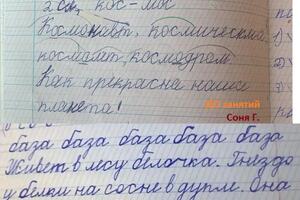 кос-мос
Космонавт, космический
космонавт, космодром.
Как прекрасна наша
планета!
занятий
Соня Г.
база база база база база
Живёт в лесу белочка. Гнездо
у белки на сосне в дупле. Она